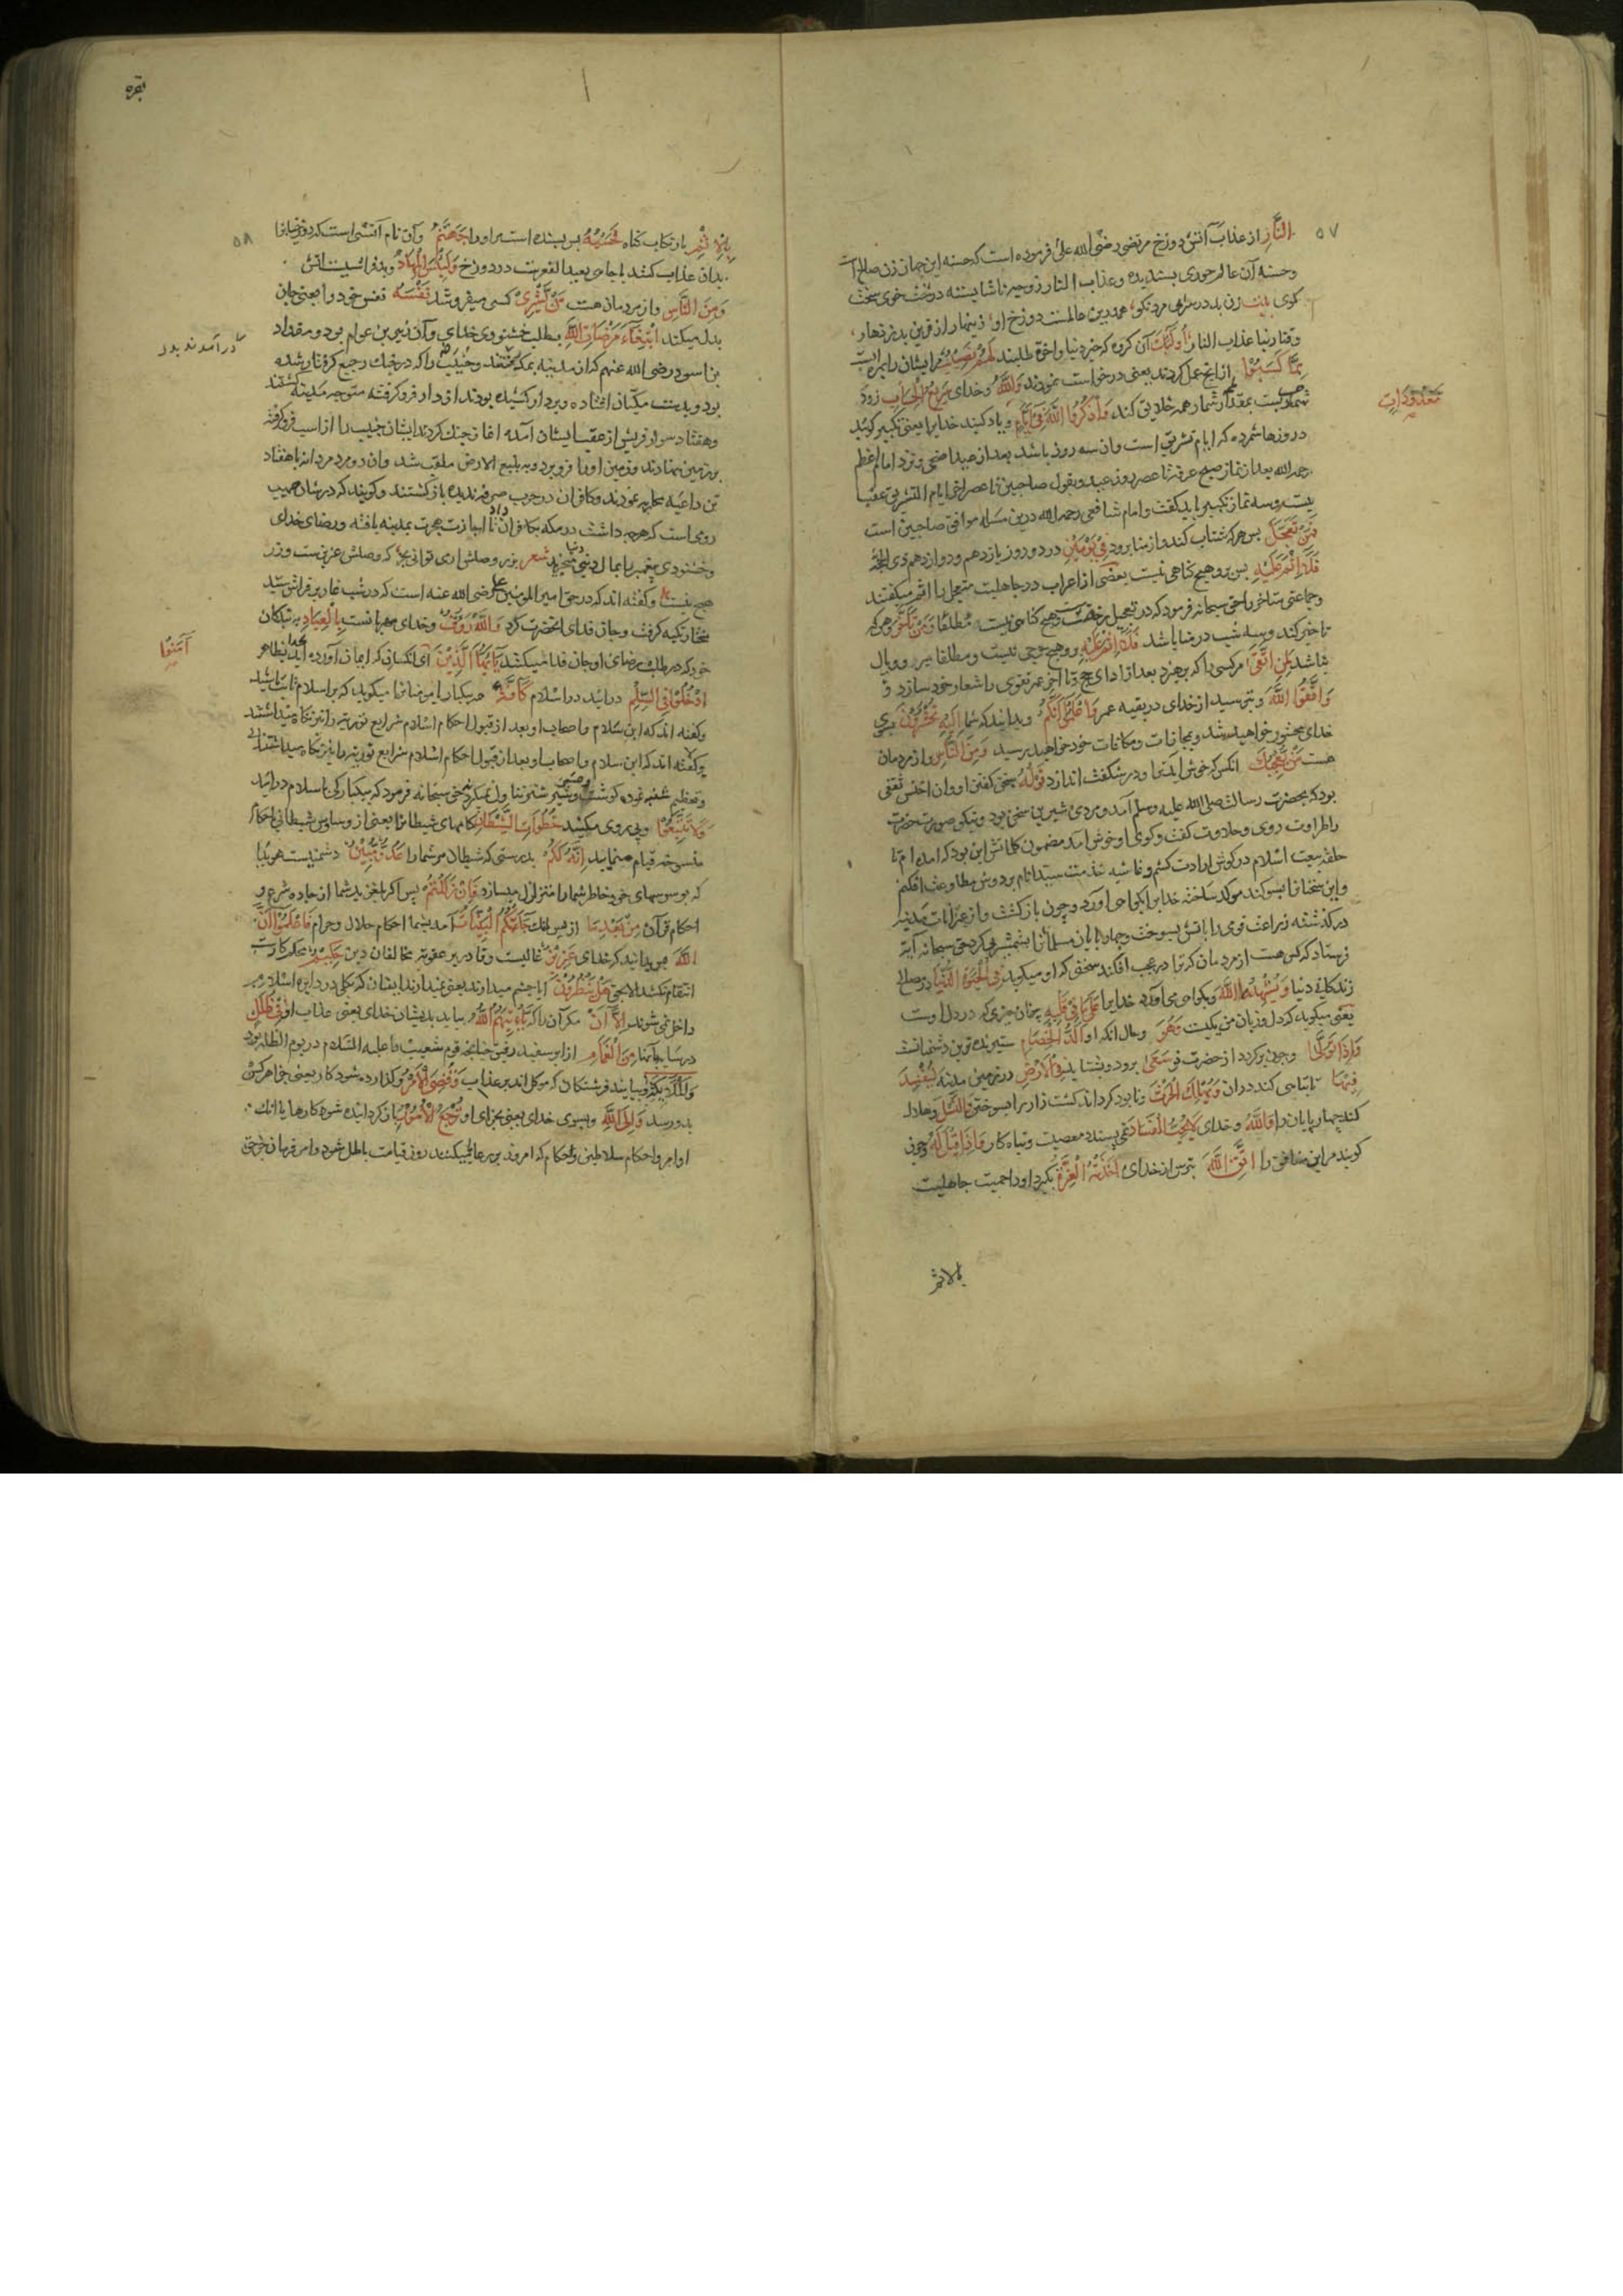 ۵۷
النَّارِ از عذاب آتش دوزخ مرتضی رضی الله عنه فرموده است که حسنه این جهان زن صالح است
وحسنه آن عالم حوری پسندیده وعذاب النار زوجه ناشایسته درشت خوی سخت
کوی بیت زن بد در سرای مرد نکو همدرین عالمست دوزخ او زینهار از قرین بد زنهار
وقنا ربنا عذاب النار أُولَئِكَ آن کروه که خیر دنیا واخرة طلبند لَهُمْ نَصِيبٌ مرایشان را بهره ایست
مِمَّا كَسَبُوا از انچ عمل کردند یعنی درخواست نمودند وَاللَّهُ وخدای سَرِيعُ الْحِسَابِ زود
شمارست بمقدار شمار همه خلایق کند وَاذْكُرُوا اللَّهَ فِي أَيَّامٍ ویاد کنید خدایرا یعنی تکبیر کویید
مَعْدُودَاتٍ
در روزها شمرده که ایام تشریق است وان سه روز باشد بعد از عید اضحی ونزد امام اعظم
رحمه الله بعد از نماز صبح عرفه تا عصر روز عید وبقول صاحبین تا عصر اخر ایام التشریق عقب
بیست وسه نماز تکبیر باید کفت وامام شافعی رحمه الله درین مسئله موافق صاحبین است
فَمَنْ تَعَجَّلَ پس هر که شتاب کند واز منا برود فِي يَوْمَيْنِ در دو روز یازدهم ودوازدهم ذی الحجة
فَلَا إِثْمَ عَلَيْهِ پس برو هیچ کناهی نیست بعضی از اعراب در جاهلیت متعجل را اثم میکفتند
وجماعتی متاخر را حق سبحانه فرمود که در تعجیل رخصت است وهیچ کناهی نیست مطلقا وَمَنْ تَأَخَّرَ وهر که
تاخیر کند وسه شب در منا باشد فَلَا إِثْمَ عَلَيْهِ وهیچ حرجی نیست ومطلقا بر ووبال
نباشد لِمَنِ اتَّقَى مرکسی را که پرهیزد بعد از ادای حج وتا اخر عمر تقوی را شعار خود سازد
وَاتَّقُوا اللَّهَ وبترسید از خدای در بقیه عمر وَاعْلَمُوا أَنَّكُمْ وبدانید که شما إِلَيْهِ تُحْشَرُونَ بسوی
خدای محشور خواهید شد وبمجازات ومکافات خود خواهید رسید وَمِنَ النَّاسِ واز مردمان
هست مَنْ يُعْجِبُكَ انکس که خوش اید ترا ودر شکفت اندازد قَوْلُهُ سخن کفتن او وان اخنس ثقفی
بود که بحضرت رسالت صلی الله علیه وسلم آمد ومردی شیرین سخن بود ونیکو صورت حضرت
را طراوت روی وحلاوت کفت وکوی او خوش امد مضمون کلماتش این بود که امده ام تا
حلقه بیعت اسلام در کوش ارادت کشم وغاشیه خدمت سید انام بر دوش مطاوعت افکنم
واین سخنانرا بسوکند موکد ساخته خدایرا بکواهی آورد وچون بازکشت واز
در کذشته زراعت قومی را باتش بسوخت وچهارپایان مسلمانانرا بشمشیر پی کرد حق سبحانه آیة
فرستاد که کس هست از مردمان که ترا در عجب افکند سخنی که او میکوید فِي الْحَيَاةِ الدُّنْيَا در مصالح
زندکانی دنیا وَيُشْهِدُ اللَّهَ وبکواهی می آورد خدایرا عَلَى مَا فِي قَلْبِهِ بر آن چیزی که در دل اوست
یعنی میکوید که دل وزبان من یکیست وَهُوَ وحال انکه او أَلَدُّ الْخِصَامِ ستیزنده ترین دشمنانست
وَإِذَا تَوَلَّى وچون برکردد از حضرت تو سَعَى برود وبشتابد فِي الْأَرْضِ در زمین مدینه لِيُفْسِدَ
فِيهَا تا تباهی کند دران وَيُهْلِكَ الْحَرْثَ ونابود کرداند کشت زار را بسوختن وَالنَّسْلَ وهلاک
کند چهارپایان را وَاللَّهُ وخدای لَا يُحِبُّ الْفَسَادَ نمی پسندد معصیت وتباه کار وَإِذَا قِيلَ لَهُ وچون
کویند مر این منافق را اتَّقِ اللَّهَ بترس از خدای أَخَذَتْهُ الْعِزَّةُ بکیرد او را حمیت جاهلیت
بالاثم
بقره
۵۸
بِالْإِثْمِ بارتکاب کناه فَحَسْبُهُ پس بسنده است مر اورا جَهَنَّمُ وآن نام آتشی است که دوزخیانرا
بدان عذاب کنند یا جاهی بعید القعرست در دوزخ وَلَبِئْسَ الْمِهَادُ وبد فراشیست آتش
وَمِنَ النَّاسِ واز مردمان هست مَنْ يَشْرِي کسی میفروشد نَفْسَهُ نفس خود را یعنی جان
بذل میکند ابْتِغَاءَ مَرْضَاتِ اللَّهِ بطلب خشنودی خدای وآن زبیر بن عوام بود ومقداد
در آمدند بدر
بن اسود رضی الله عنهم که از مدینه بمکه رفتند وخبیب را که در جنک رجیع کرفتار شده
بود وبدست مکیان افتاده وبردار کشیده بودند از دار فرو کرفته متوجه مدینه کشتند
وهفتاد سوار قریش از عقب ایشان آمده اغاز جنک کردند ایشان خبیب را از اسب فرو کرفته
بر زمین نهادند وزمین اورا فرو برد وبه بلیع الارض ملقب شد وان دو مرد مردانه با هفتاد
تن داعیه محاربه نمودند وکافران در حرب صرفه ندیده بازکشتند وکویند که در شان صهیب
رومی است که هرچه داشت در مکه بکافران داد تا اجازت هجرت بمدینه یافته ورضای خدای
وخشنودی پیغمبر بامال دنیی بخرید شعر بزر وصلش اری توانی که وصلش عزیزست وزر
هیچ نیست وکفته اند که در حق امیر المومنین علی رضی الله عنه است که در شب غار بر فراش سید
مختار تکیه کرفت وجان فدای انحضرت کرد وَاللَّهُ رَءُوفٌ وخدای مهربانست بِالْعِبَادِ به بندکان
خود که در طلب رضای او جان فدا میکنند يَا أَيُّهَا الَّذِينَ ای انکسانی که ایمان آورده اید بظاهر
آمَنُوا
ادْخُلُوا فِي السِّلْمِ در ایید در اسلام كَافَّةً همه یکبار امومنانرا میکوید که بر اسلام ثابت باشید
وکفته اند که ابن سلام واصحاب او بعد از قبول احکام اسلام شرایع توریة را نیز نکاه میداشتند
وکفته اند که ابن سلام واصحاب او بعد از قبول احکام اسلام شرایع توریة را نیز نکاه میداشتند
وتعظیم شنبه نموده کوشت وشیر شتر تناول نمیکردند حق سبحانه فرمود که بیکبارکی باسلام در ایید
وَلَا تَتَّبِعُوا وپی روی مکنید خُطُوَاتِ الشَّيْطَانِ کامهای شیطانرا یعنی از وساوس شیطانی باحکام
منسوخه قیام منمایید إِنَّهُ لَكُمْ بدرستی که شیطان مر شما را عَدُوٌّ مُبِينٌ دشمنیست هویدا
که بوسوسهای خود خاطر شما را متزلزل میسازد فَإِنْ زَلَلْتُمْ پس اکر بلغزید شما از جاده شرع و
احکام قرآن مِنْ بَعْدِ مَا از پس انک جَاءَتْكُمُ الْبَيِّنَاتُ آمد بشما احکام حلال وحرام فَاعْلَمُوا أَنَّ
اللَّهَ پس بدانید که خدای عَزِيزٌ غالبست وقادر بر عقوبة مخالفان دین حَكِيمٌ محکم کارست
انتقام نکشد الا بحق هَلْ يَنْظُرُونَ ایا چشم میدارند یعنی نمیدارند ایشان که بکلی در دایره اسلام
داخل نمی شوند إِلَّا أَنْ مکر آن را که يَأْتِيَهُمُ اللَّهُ بیاید بدیشان خدای یعنی عذاب او فِي ظُلَلٍ
در سایه بانها مِنَ الْغَمَامِ از ابر سفید رقیق چنانچه قوم شعیب را علیه السلام در یوم الظله بود
وَالْمَلَائِكَةُ وبیایند فرشتکان که موکل اند بر عذاب وَقُضِيَ الْأَمْرُ وکذارده شود کار یعنی جزا هر کس
بدو رسد وَإِلَى اللَّهِ وبسوی خدای یعنی بجزای او تُرْجَعُ الْأُمُورُ بازکردانیده شود کارها یا انک
اوامر واحکام سلاطین وحکام که امروز بر رعایا میکنند روز قیامت باطل شود وامر وفرمان حق